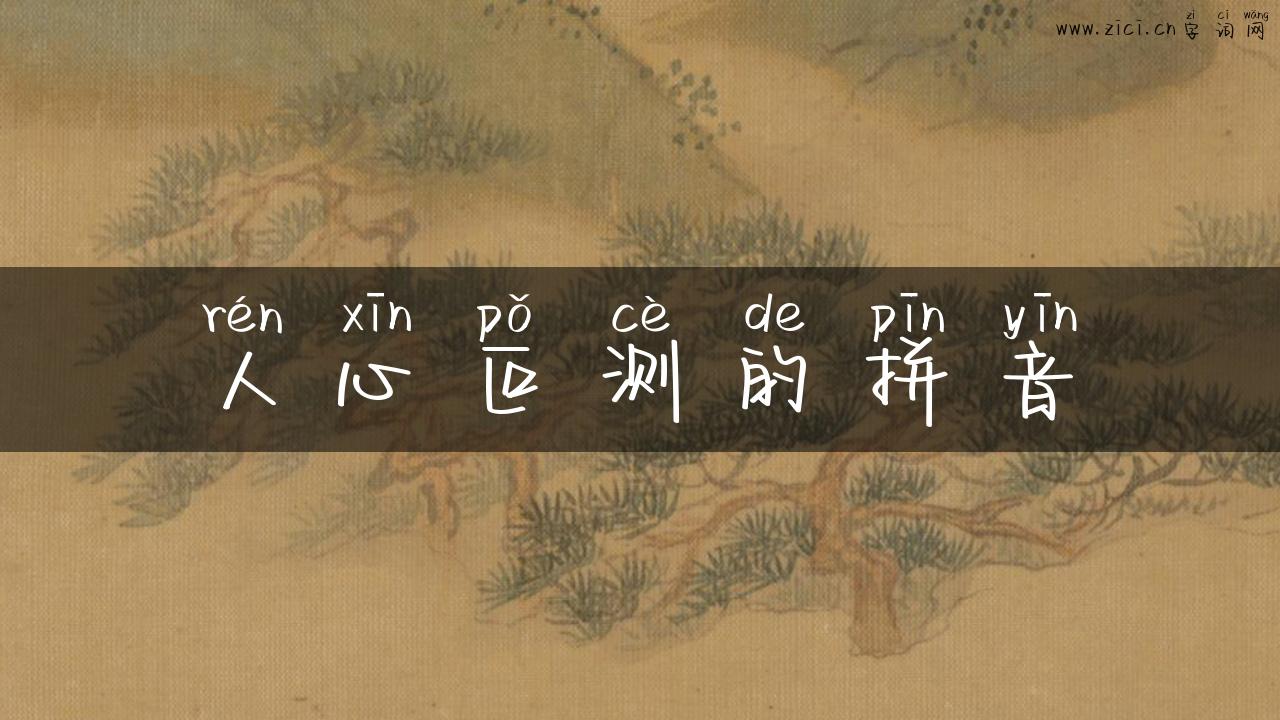 zì cí wǎng
www.zici.cn 字词网
rén xīn pǒ cè de pīn yīn
人心叵测的拼音